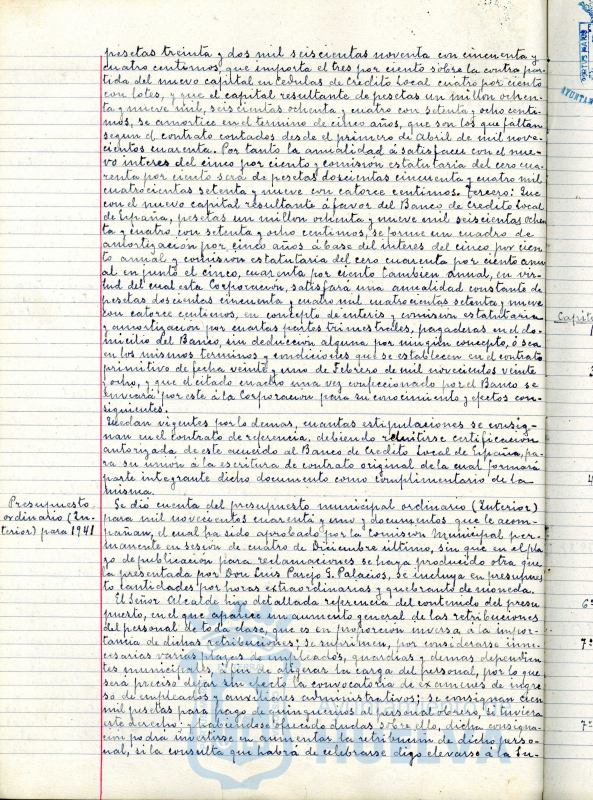 pesetas treinta y dos mil seiscientas noventa con cincuenta y
cuatro centimos, que importa el tres por ciento sobre la contra par-
tida del nuevo capital en Cedulas de Credito Local cuatro por ciento
con lotes, y que el capital resultante de pesetas un millon ochen-
ta y nueve mil, seis cientas ochenta y cuatro con setenta y ocho centi-
mos, se amortice en el termino de cinco años, que son los que faltan
segun el contrato contados desde el primero de Abril de mil nove-
cientos cuarenta. Por tanto la anualidad á satisfacer con el nue-
vo interes del cinco por ciento y comisión estatutaria del cero cua-
renta por ciento será de pesetas doscientas cincuenta y cuatro mil
cuatrocientas setenta y nueve con catorce centimos. Tercero: Que
con el nuevo capital resultante á favor del Banco de Credito Local
de España, pesetas un millon ochenta y nueve mil seiscientas ochen
ta y cuatro con setenta y ocho centimos, se forme un cuadro de
amortización por cinco años á base del interes del cinco por cien
to anual y comision estatutaria del cero cuarenta por ciento anu
al en junto el cinco, cuarenta por ciento tambien anual, en vir-
tud del cual esta Corporacion, satisfará una anualidad constante de
pesetas doscientas cincuenta y cuatro mil cuatrocientas setenta y nueve
con catorce centimos, en concepto de interés y comisión estatutaria
y amortización por cuartas partes trimestrales, pagaderas en el do-
micilio del Banco, sin deducción alguna por ningun concepto, ó sea
en los mismos terminos y condiciones que se establecen en el contrato
primitivo de fecha veinte y uno de Febrero de mil novecientos veinte
y ocho, y que el citado cuadro una vez confeccionado por el Banco se
enviará por este á la Corporacion para su conocimiento y efectos con-
siguientes.
Quedan vigentes por lo demas, cuantas estipulaciones se consig-
nan en el contrato de referencia, debiendo remitirse certificación
autorizada de este acuerdo al Banco de Credito Local de España, pa-
ra su union á la escritura de contrato original de la cual formará
parte integrante dicho documento como complimentario de la
misma.
Presupuesto
ordinario (In-
terior) para 1941
Se dió cuenta del presupuesto municipal ordinario (Interior)
para mil novecientos cuarenta y uno y documentos que le acom-
pañan, el cual ha sido aprobado por la Comisión Municipal per-
manente en sesión de cuatro de Diciembre ultimo, sin que en el pla-
zo de publicación para reclamaciones se haya producido otra que
la presentada por Don Luis Parejo G. Palacios, se incluya en presupues
to cantidades por horas extraordinarias y quebranto de moneda.
El Señor Alcalde hizo detallada referencia del contenido del presu
puesto, en el que aparece un aumento general de las retribuciones
del personal de toda clase, que es en proporción inversa á la impor-
tancia de dichas retribuciones; se suprimen, por considerarse inne-
cesarias varias plazas de empleados, guardias y demas dependien
tes municipales, á fin de aligerar la carga del personal, por lo que
será preciso dejar sin efecto la convocatoria de examenes de ingre
so de empleados y auxiliares administrativos; se consignan cien
mil pesetas para pago de quinquenios al personal obrero, si tuviera
este derecho; habiendose ofrecido dudas sobre ello, dicha consigna-
ción podrá invertirse en aumentar la retribución de dicho perso-
nal, si la consulta que habrá de celebrarse digo elevarse á la Su-
Capít
6º
7º
7º